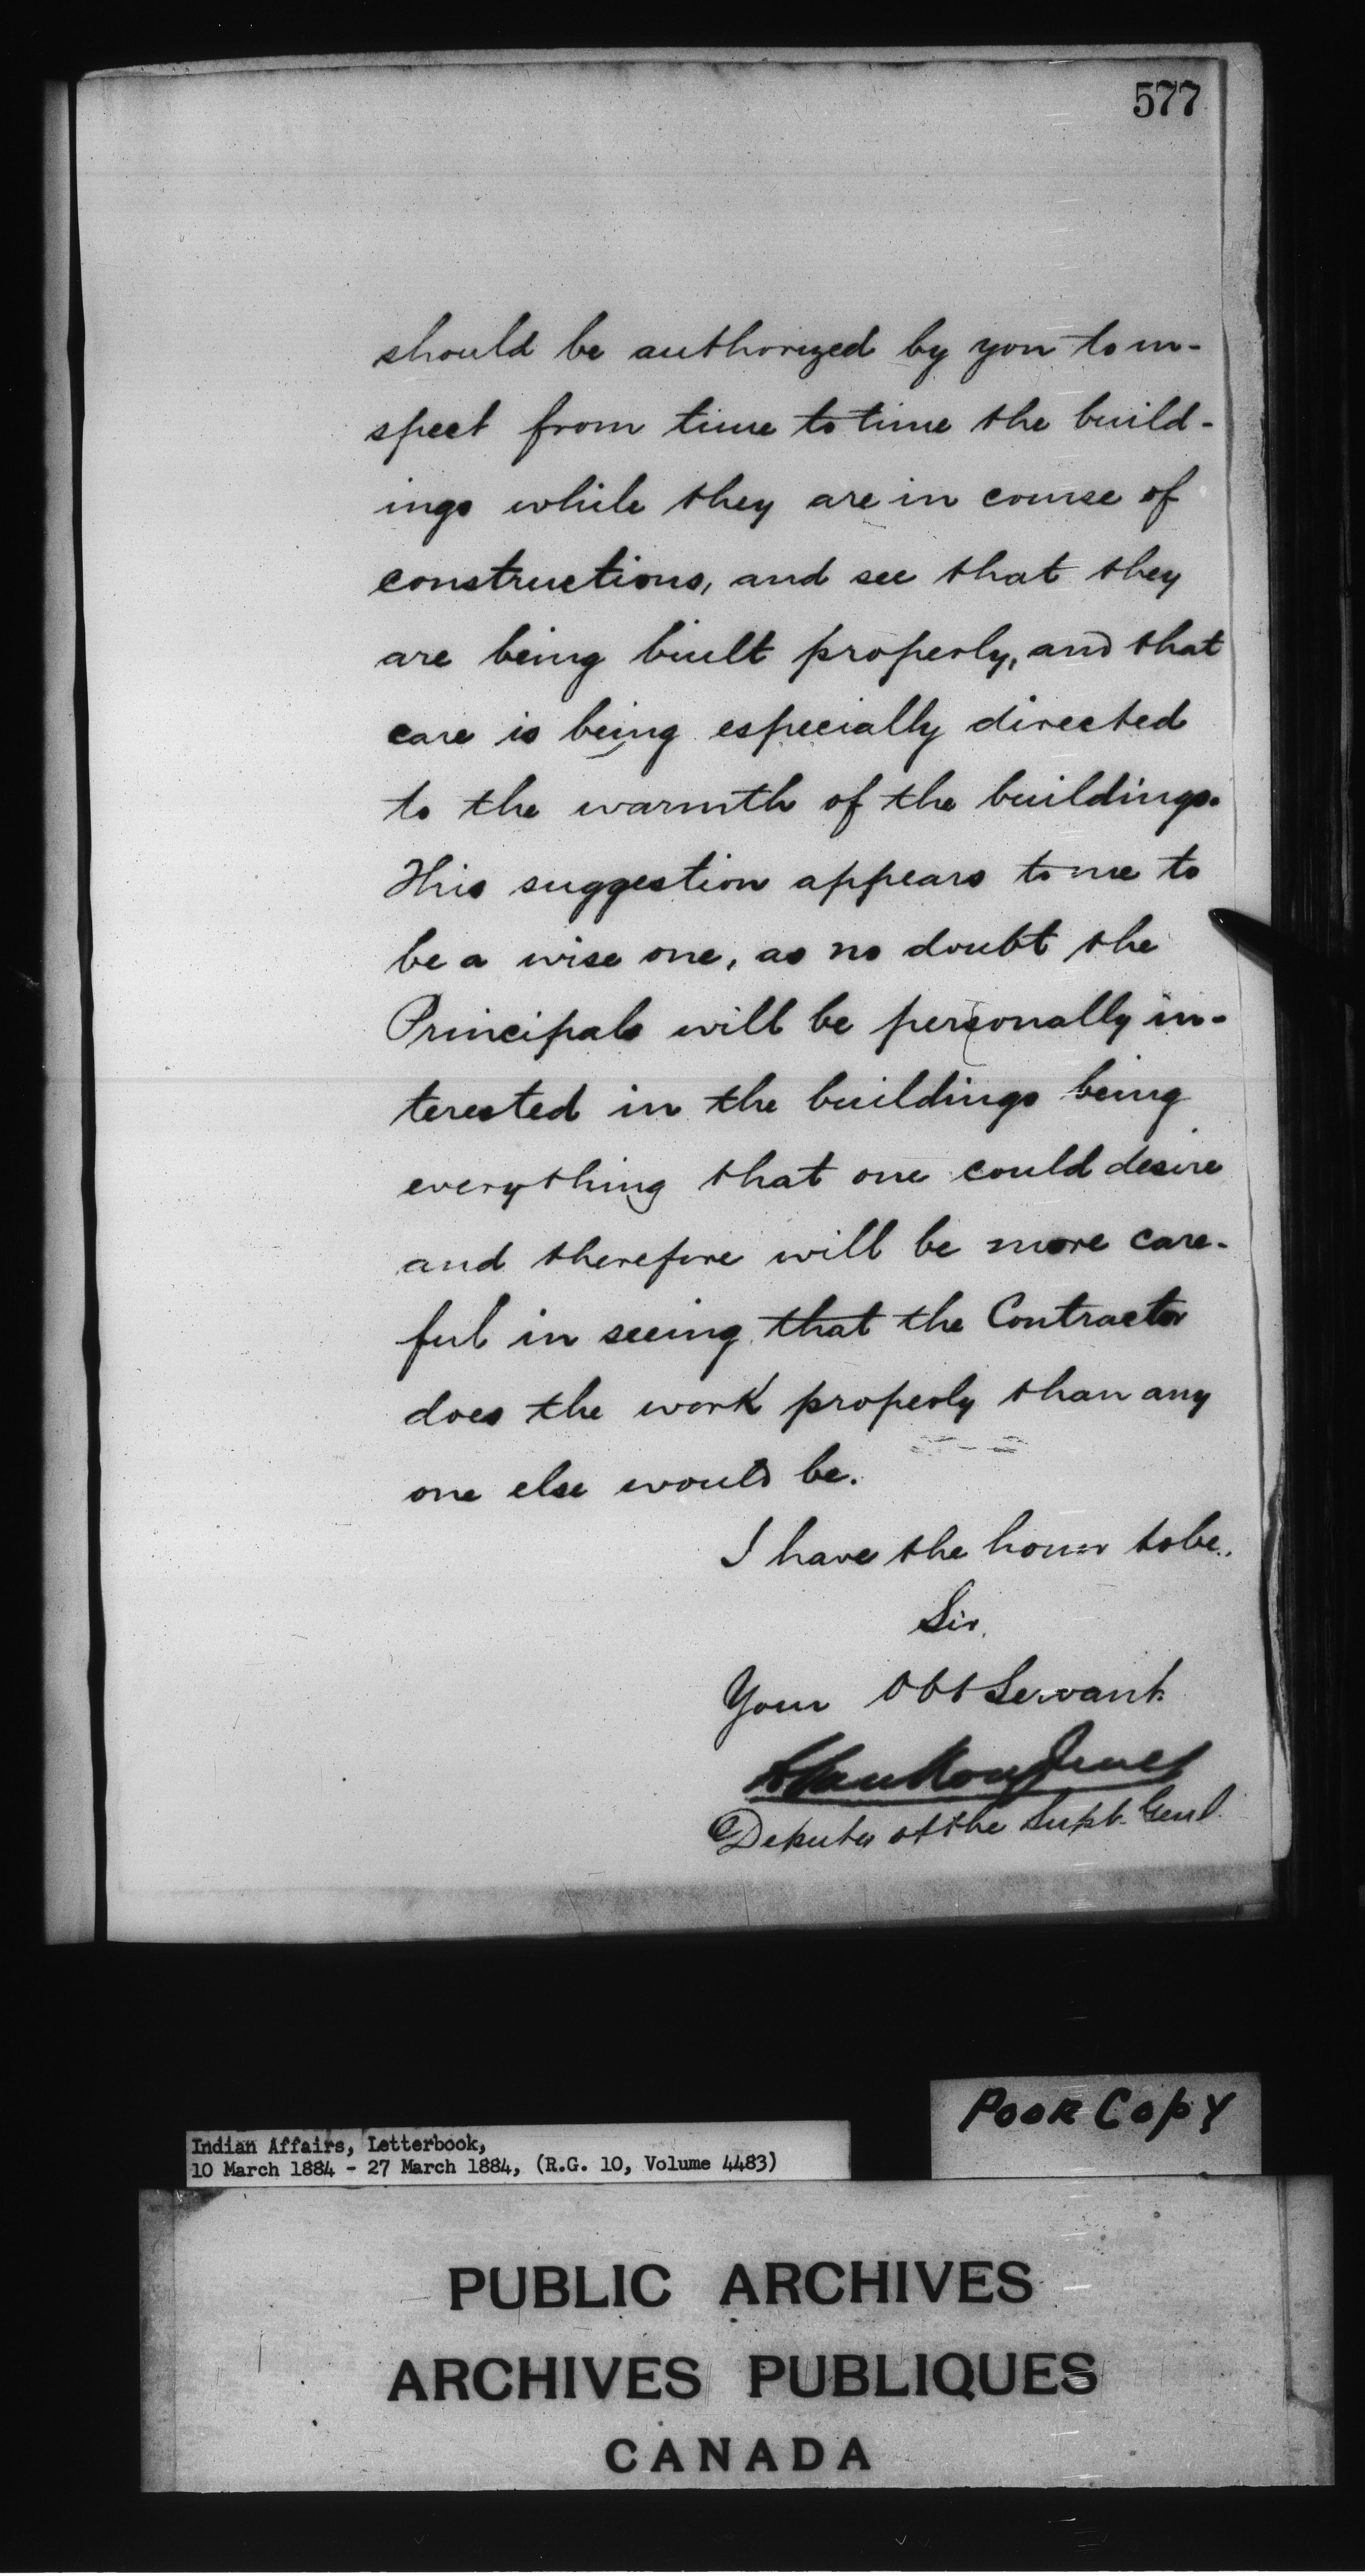 577
should be authorized by you to in-
spect from time to time the build-
ings while they are in course of
constructions, and see that they
are being built properly, and that
care is being especially directed
to the warmth of the buildings.
This suggestion appears to me to
be a wise one, as no doubt the
Principals will be personally in-
terested in the buildings being
everything that one could desire
and therefore will be more care-
ful in seeing that the Contractor
does the work properly than any
one else would be.
I have the honor to be.
Sir,
Your Obt Servant
Deputy of the Supt. Genl.
Poor Copy
Indian Affairs, Letterbook,
10 March 1884 - 27 March 1884, (R.G. 10, Volume 4483)
PUBLIC ARCHIVES
ARCHIVES PUBLIQUES
CANADA